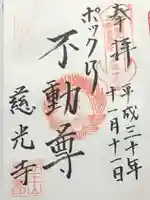 奉拝
平成三十年
十一月十一日
ポックリ
不動尊
慈光寺